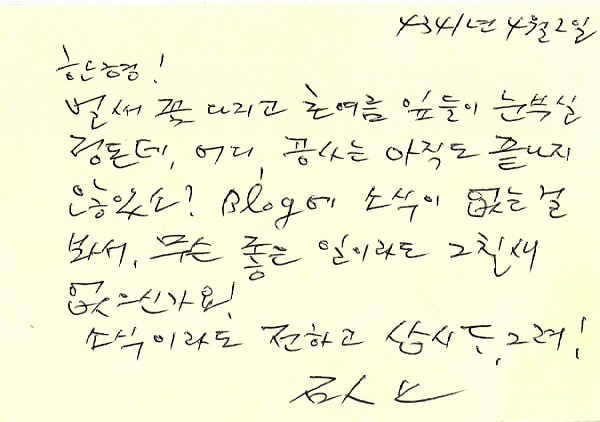 4341년 4월 2일
벌써 꽃 다지고 초여름 잎들이 눈부실
정돈데, 어디, 공사는 아직도 끝나지
않았소? Blog에 소식이 없는걸
봐서, 무슨 좋은 일이라도
없으신가요!
소식이라도 전하고 삽시다, 그려!